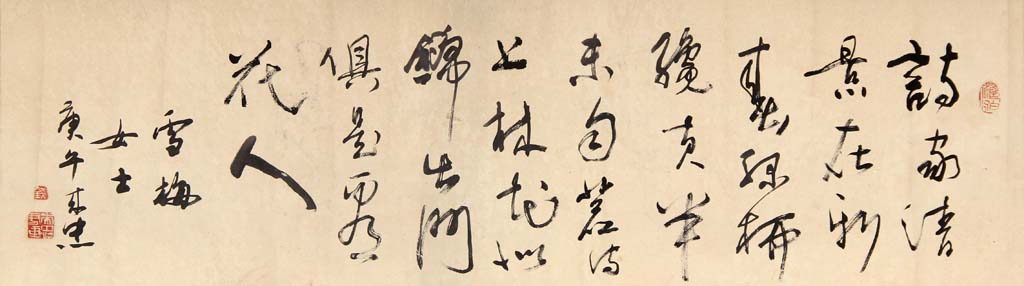 詩家清
景在新
春綠柳
纔黃半
未勻若待
上林花似
錦出門
俱是看
花人
雪梅
女士
庚午